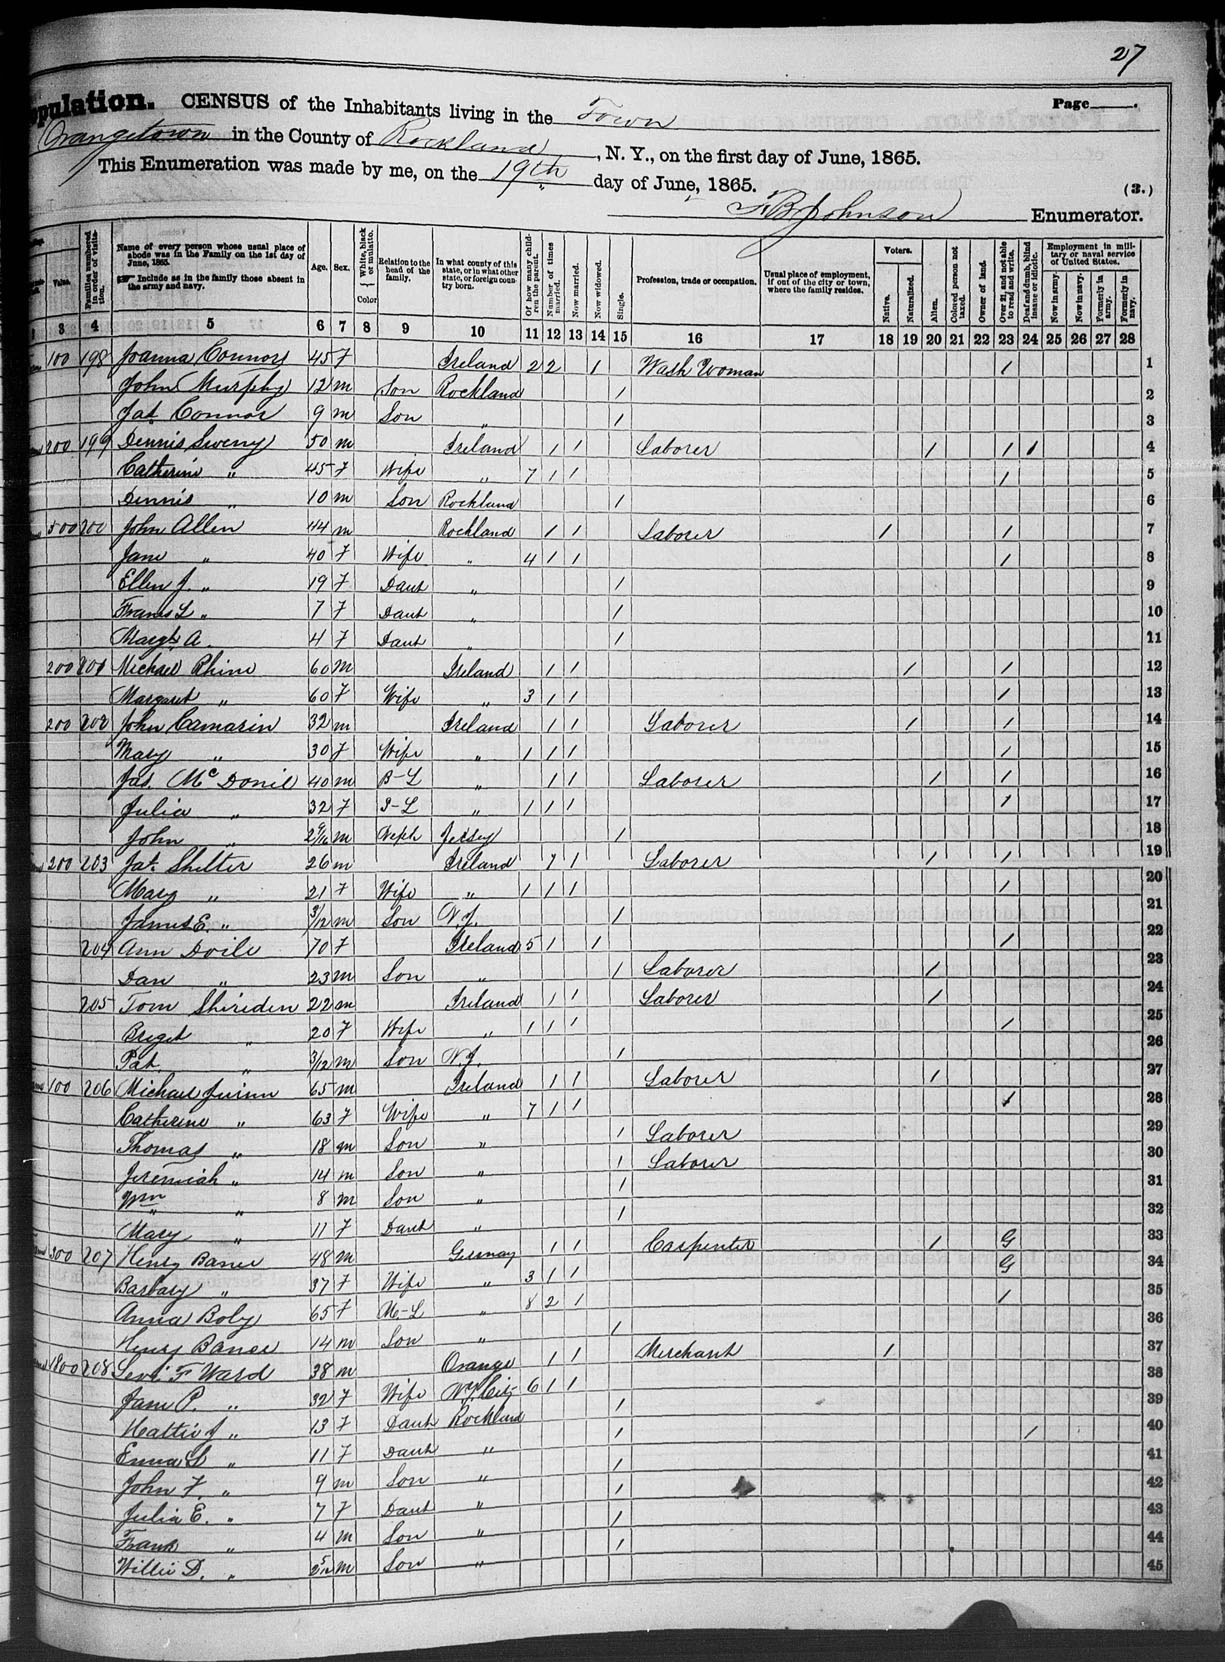 27
opulation. CENSUS of the Inhabitants living in the Town Page
Orangetown in the County of Rockland, N. Y., on the first day of June, 1865.
This Enumeration was made by me, on the 19th day of June, 1865. (3.)
Johnson Enumerator.
Value.
Families numbered in order of visitation.
Name of every person whose usual place of abode was in the Family on the 1st day of June, 1865.
Include as in the family those absent in the army and navy.
Age.
Sex.
White, black or mulatto.
Color
Relation to the head of the family.
In what county of this state, or in what other state, or foreign country born.
Of how many children the parent.
Number of times married.
Now married.
Now widowed.
Single.
Profession, trade or occupation.
Usual place of employment, if out of the city or town, where the family resides.
Voters.
Native.
Naturalized.
Alien.
Colored person not taxed.
Owner of land.
Over 21, and not able to read and write.
Deaf and dumb, blind insane or idiotic.
Employment in military or naval service of United States.
Now in army.
Now in navy.
Formerly in army.
Formerly in navy.
3 4 5 6 7 8 9 10 11 12 13 14 15 16 17 18 19 20 21 22 23 24 25 26 27 28
100 198 Joanna Connors 45 F Ireland 2 2 1 Wash Woman 1 1
John Murphy 12 m Son Rockland 1 2
Jas Connor 9 m Son " 1 3
200 199 Dennis Sweny 50 m Ireland 1 1 Laborer 1 1 1 4
Catherine " 45 F Wife " 7 1 1 1 5
Dennis " 10 m Son Rockland 1 6
500 200 John Allen 44 m Rockland 1 1 Laborer 1 1 7
Jane " 40 F Wife " 4 1 1 1 8
Ellen J. " 19 F Daut " 1 9
Frances L " 7 F Daut " 1 10
Margt A. 4 F Daut " 1 11
200 201 Michael Rhine 60 m Ireland 1 1 1 1 12
Margaret " 60 F Wife " 3 1 1 1 13
200 202 John Camarin 32 m Ireland 1 1 Laborer 1 1 14
Mary " 30 F Wife " 1 1 1 1 15
Jas. McDonil 40 m B-L " 1 1 Laborer 1 1 16
Julia " 32 F S-L " 1 1 1 1 17
John " m Neph Jersey 1 18
200 203 Jas. Shelter 26 m Ireland 1 1 Laborer 1 1 19
Mary " 21 F Wife " 1 1 1 1 20
James E. " 3/12 m Son N.J. 1 21
204 Ann Doile 70 F Ireland 5 1 1 1 22
Dan " 23 m Son " 1 Laborer 1 23
205 Tom Shiriden 22 m Ireland 1 1 Laborer 1 24
Breget " 20 F Wife " 1 1 1 1 25
Pat. " 3/12 m Son N.J. 1 26
100 206 Michael 65 m Ireland 1 1 Laborer 1 27
Catherine " 63 F Wife " 7 1 1 1 28
Thomas " 18 m Son " 1 Laborer 29
Jeremiah " 14 m Son " 1 Laborer 30
Wm " 8 m Son " 1 31
Mary " 11 F Daut " 1 32
300 207 Henry Baner 48 m Germay 1 1 Carpenter 1 G 33
Barbary " 37 F Wife " 3 1 1 G 34
Anna Boly 65 F M-L " 8 2 1 1 35
Henry Baner 14 m Son " 1 36
1800 208 Levi F Ward 38 m Orange 1 1 Merchant 1 37
Jane P. " 32 F Wife N.Y. City 6 1 1 38
Hattie J " 13 F Daut Rockland 1 39
Emma L " 11 F Daut " 1 1 40
John F. " 9 m Son " 1 41
Julia E. " 7 F Daut " 1 42
Frank " 4 m Son " 1 43
Willie D. " m Son " 1 44
45